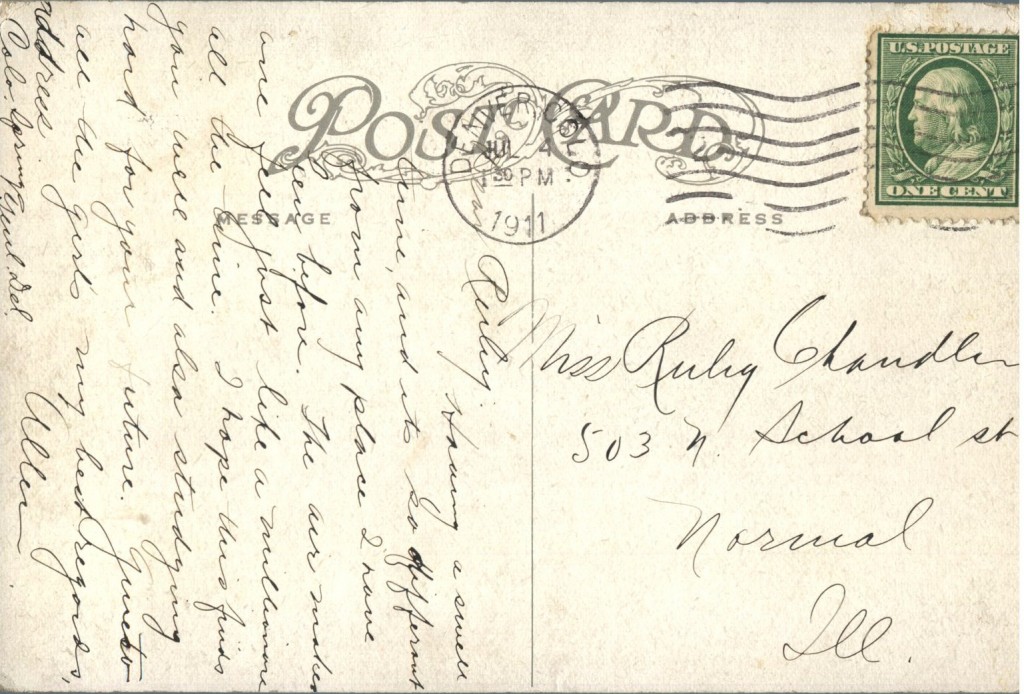 POST CARD
DENVER COLO
JUL 4
1 30 PM
1911
U.S. POSTAGE
ONE CENT
MESSAGE
ADDRESS
Dear Ruby:
Having a swell
time, and its so different
from any place I have
been before. The air makes
one feel just like a millionaire
all the time. I hope this finds
you well and also studying
hard for your future. Give to
all the girls my best regards,
Allen.
Address
Colo. Springs Genl. Del.
Miss Ruby Chandler
503 N. School st
Normal
Ill.